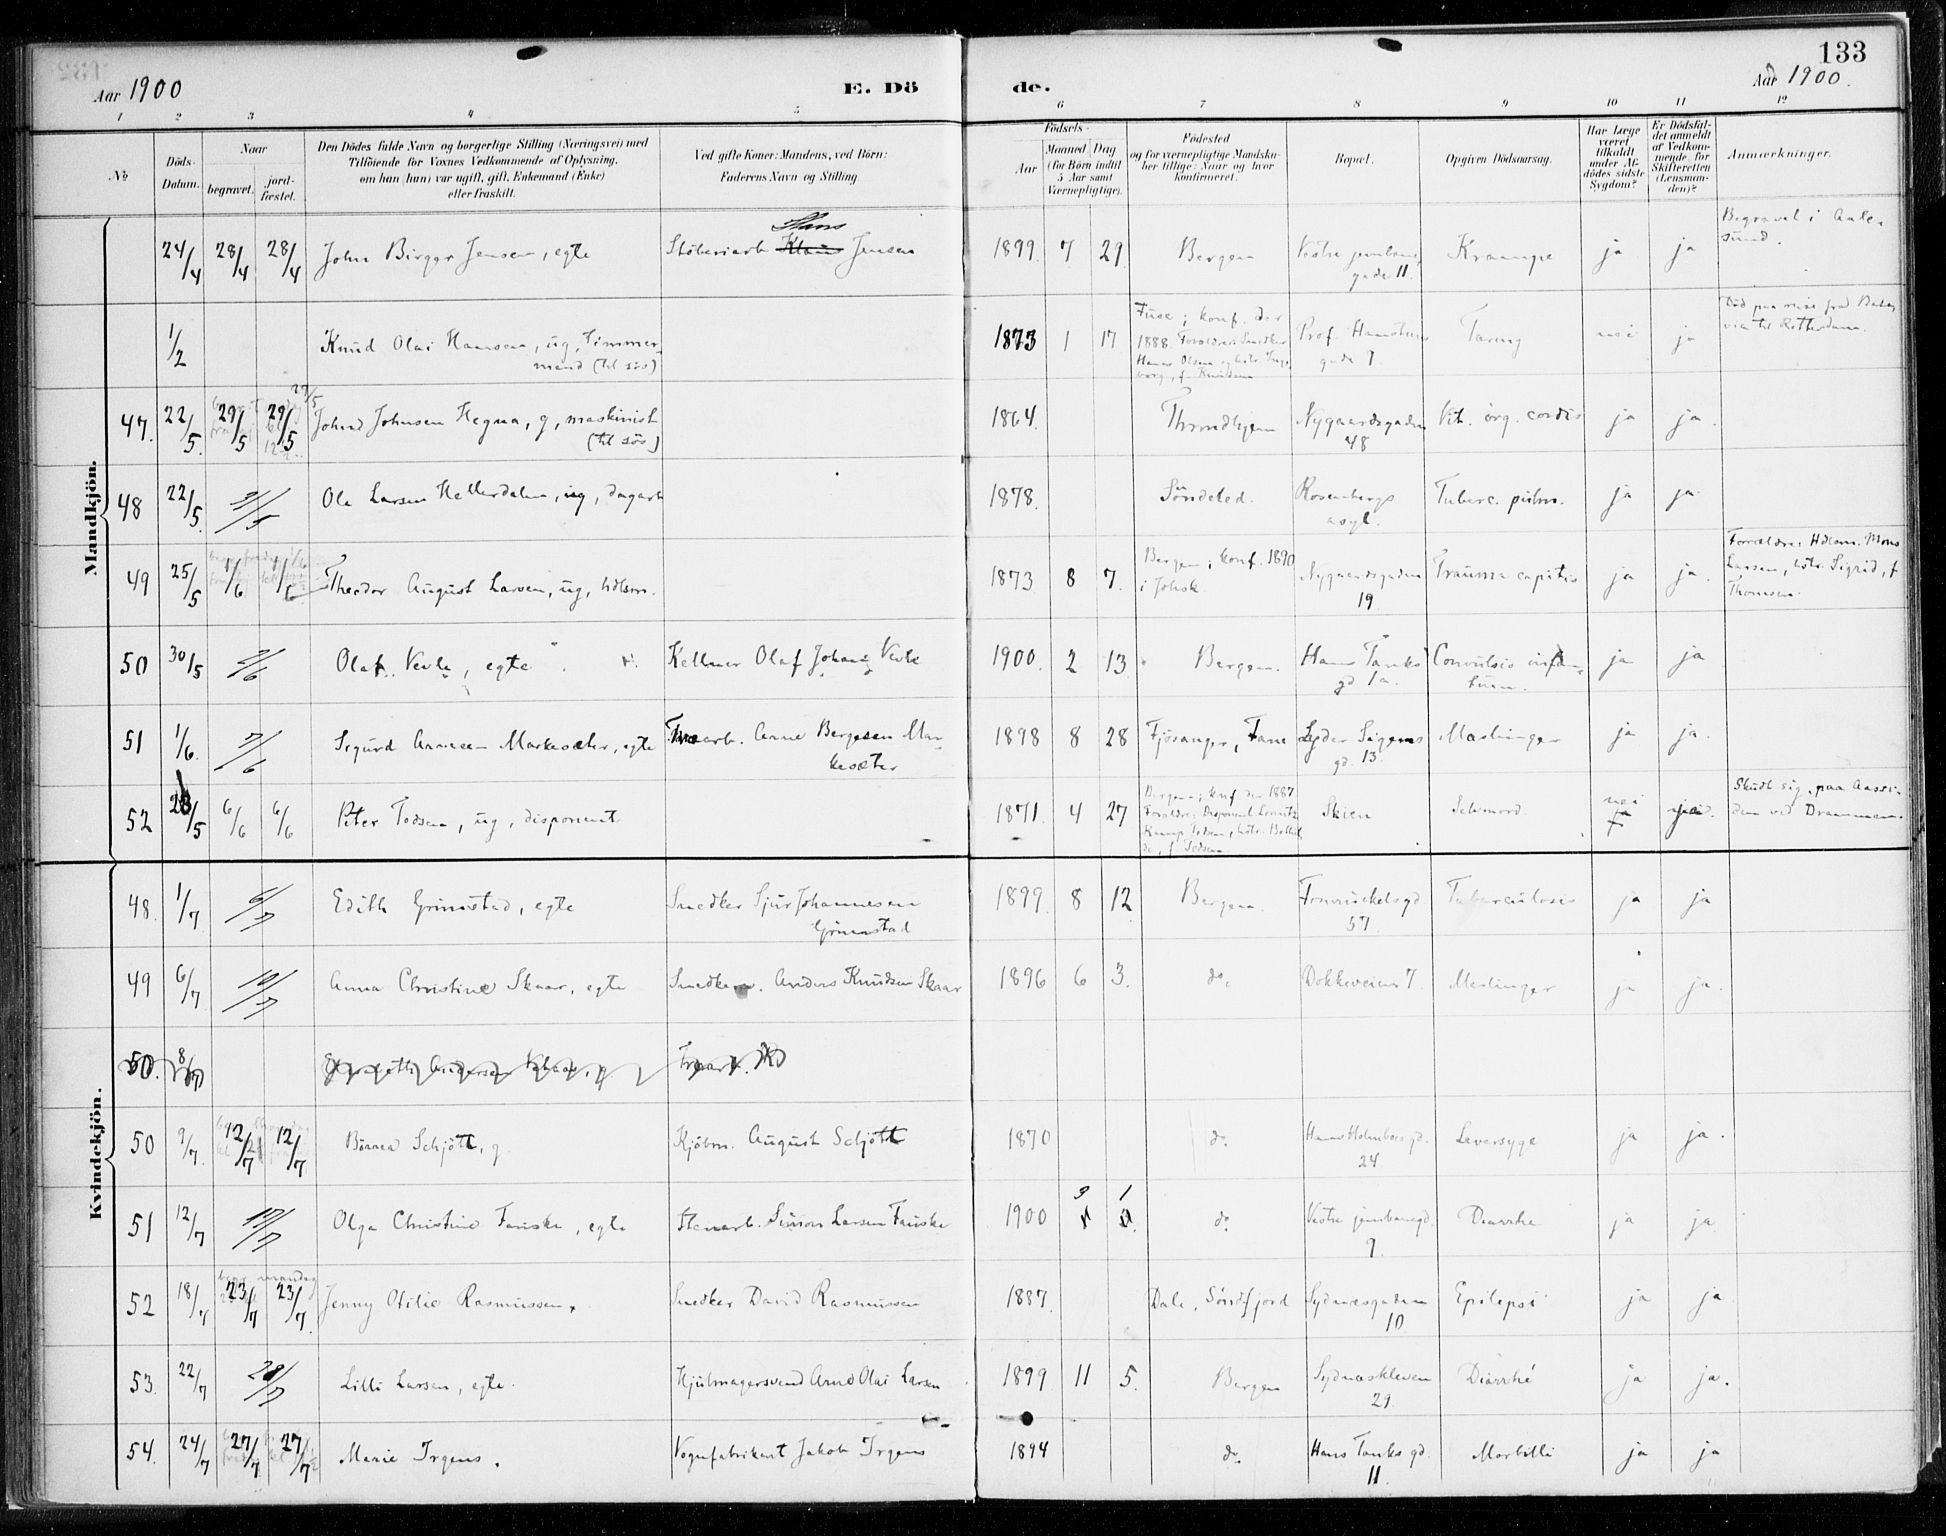 133
Aar 1900
E. Dö
de.
Aar 1900.
1 2 3 4 5 6 7 8 9 10 11 12
No
Döds-
Datum.
Naar
begravet.
jord-
fæstet.
Den Dödes fulde Navn og borgerlige Stilling (Næringsvei) med
Tilföiende for Voxnes Vedkommende af Oplysning,
om han (hun) var ugift, gift, Enkemand (Enke)
eller fraskilt.
Ved gifte Koner: Mandens, ved Börn:
Faderens Navn og Stilling.
Födsels-
Aar
Maaned. Dag.
(for Börn indtil
5 Aar samt
Værnepligtige).
Födested
og for værnepligtige Mandskaber tillige: Naar og hvor
konfirmeret.
Bopæl.
Opgiven Dödsaarsag.
Har Læge
været
tilkaldt
under Afdödes sidste
Sygdom?
Er Dödsfaldet anmeldt
af Vedkommende for
Skifteretten
(Lensmanden)?
Anmærkninger.
Mandkjön.
24/4 28/4 28/4 John Birger Jensen, egte Støberiarb. Klaus Hans Jensen 1899. 7 29. Bergen Vestre jernbanegade 11 Krampe ja ja Begravet i Aalesund.
1/2 Knud Olai Hansen, ug, Tømmermand (til søs) 1873 1 17 Fuse; konf. der 1888. Forældre: Snedker Hans Olsen og hstr. Ingeborg, f. Knudsen Prof. Hansteens gade 7 Tæring nei ja Död paa reise fra Batavia til Rotterdam.
47. 22/5. 29/5 29/5 Johns Johnsen Hegna, g, maskinist (til søs) 1864. Throndhjem Nygaardsgaden 48 Vit. org. cordis ja ja.
48 22/5. 31/5 Ole Larsen Hellerdalen, ug, dagarb. 1878. Söndeled. Rosenbergs asyl. Tuberc. pulm. ja ja.
49 25/5 1/6 1/6 Theodor August Larsen, ug, hdlsm. 1873 8 7. Bergen; konf. 1890 i Johsk. Nygaardsgaden 19 Trauma capitis ja ja. Forældre: Hdlsm. Mons Larsen, hstr. Sigrid, f. Thomsen.
50 30/5 2/6 Olaf Vevle, egte Kellner Olaf Johan Vevle 1900. 2 13. Bergen. Hans Tanks gd 1a. Convulsio infantum. ja ja
51 1/6. 7/6 Sigurd Arnesen Markesæter, egte Arne Bergesen Markesæter 1898 8 28 Fjösanger, Fane Lyder Sagens gd. 13. Mæslinger ja ja.
52 28/5 6/6 6/6 Peter Todsen, ug, disponent 1871. 4 27 Bergen; konf. der 1887. Skien Selvmord. nei Skudt sig paa Aassiden ved Drammen.
Kvindekjön.
48. 1/7 6/7 Edith Grimstad, egte Snedker Sjur Johannesen Grimstad 1899. 8 12 Bergen. Fosswinckelsgd. 57 Tuberculosis ja ja
49 6/7 10/7 Anna Christine Skaar, egte Anders Knudsen Skaar 1896 6 3. do. Dokkeveien 7 Meslinger ja ja.
50. 8/7
50 9/7. 12/7 12/7 Schjött, g. Kjöbm. August Schjött 1870 do. Hans Holmboes gd. 24 Leversyge ja ja.
51 12/7 17/7 Olga Christine Fauske, egte Stenarb. Simon Larsen Fauske 1900 3 1 do. Vestre jernbanegd. 9. Diarrhe ja ja
52 18/7 23/7 23/7. Jenny Otilie Rasmussen. Snedker David Rasmussen 1887. Dale, Söndfjord Sydnæsgaden 10 Epilepsi ja ja
53. 22/7 28/7 Lilli Larsen, egte. Hjulmagersvend Arnt Olai Larsen 1899 11 5. Bergen Sydnæskleven 29 Diarrhé ja ja.
54. 24/7 27/7 27/7 Marie Irgens. Vognfabrikant Jakob Irgens 1894 do. Hans Tanks gd. 11. Morbilli ja ja